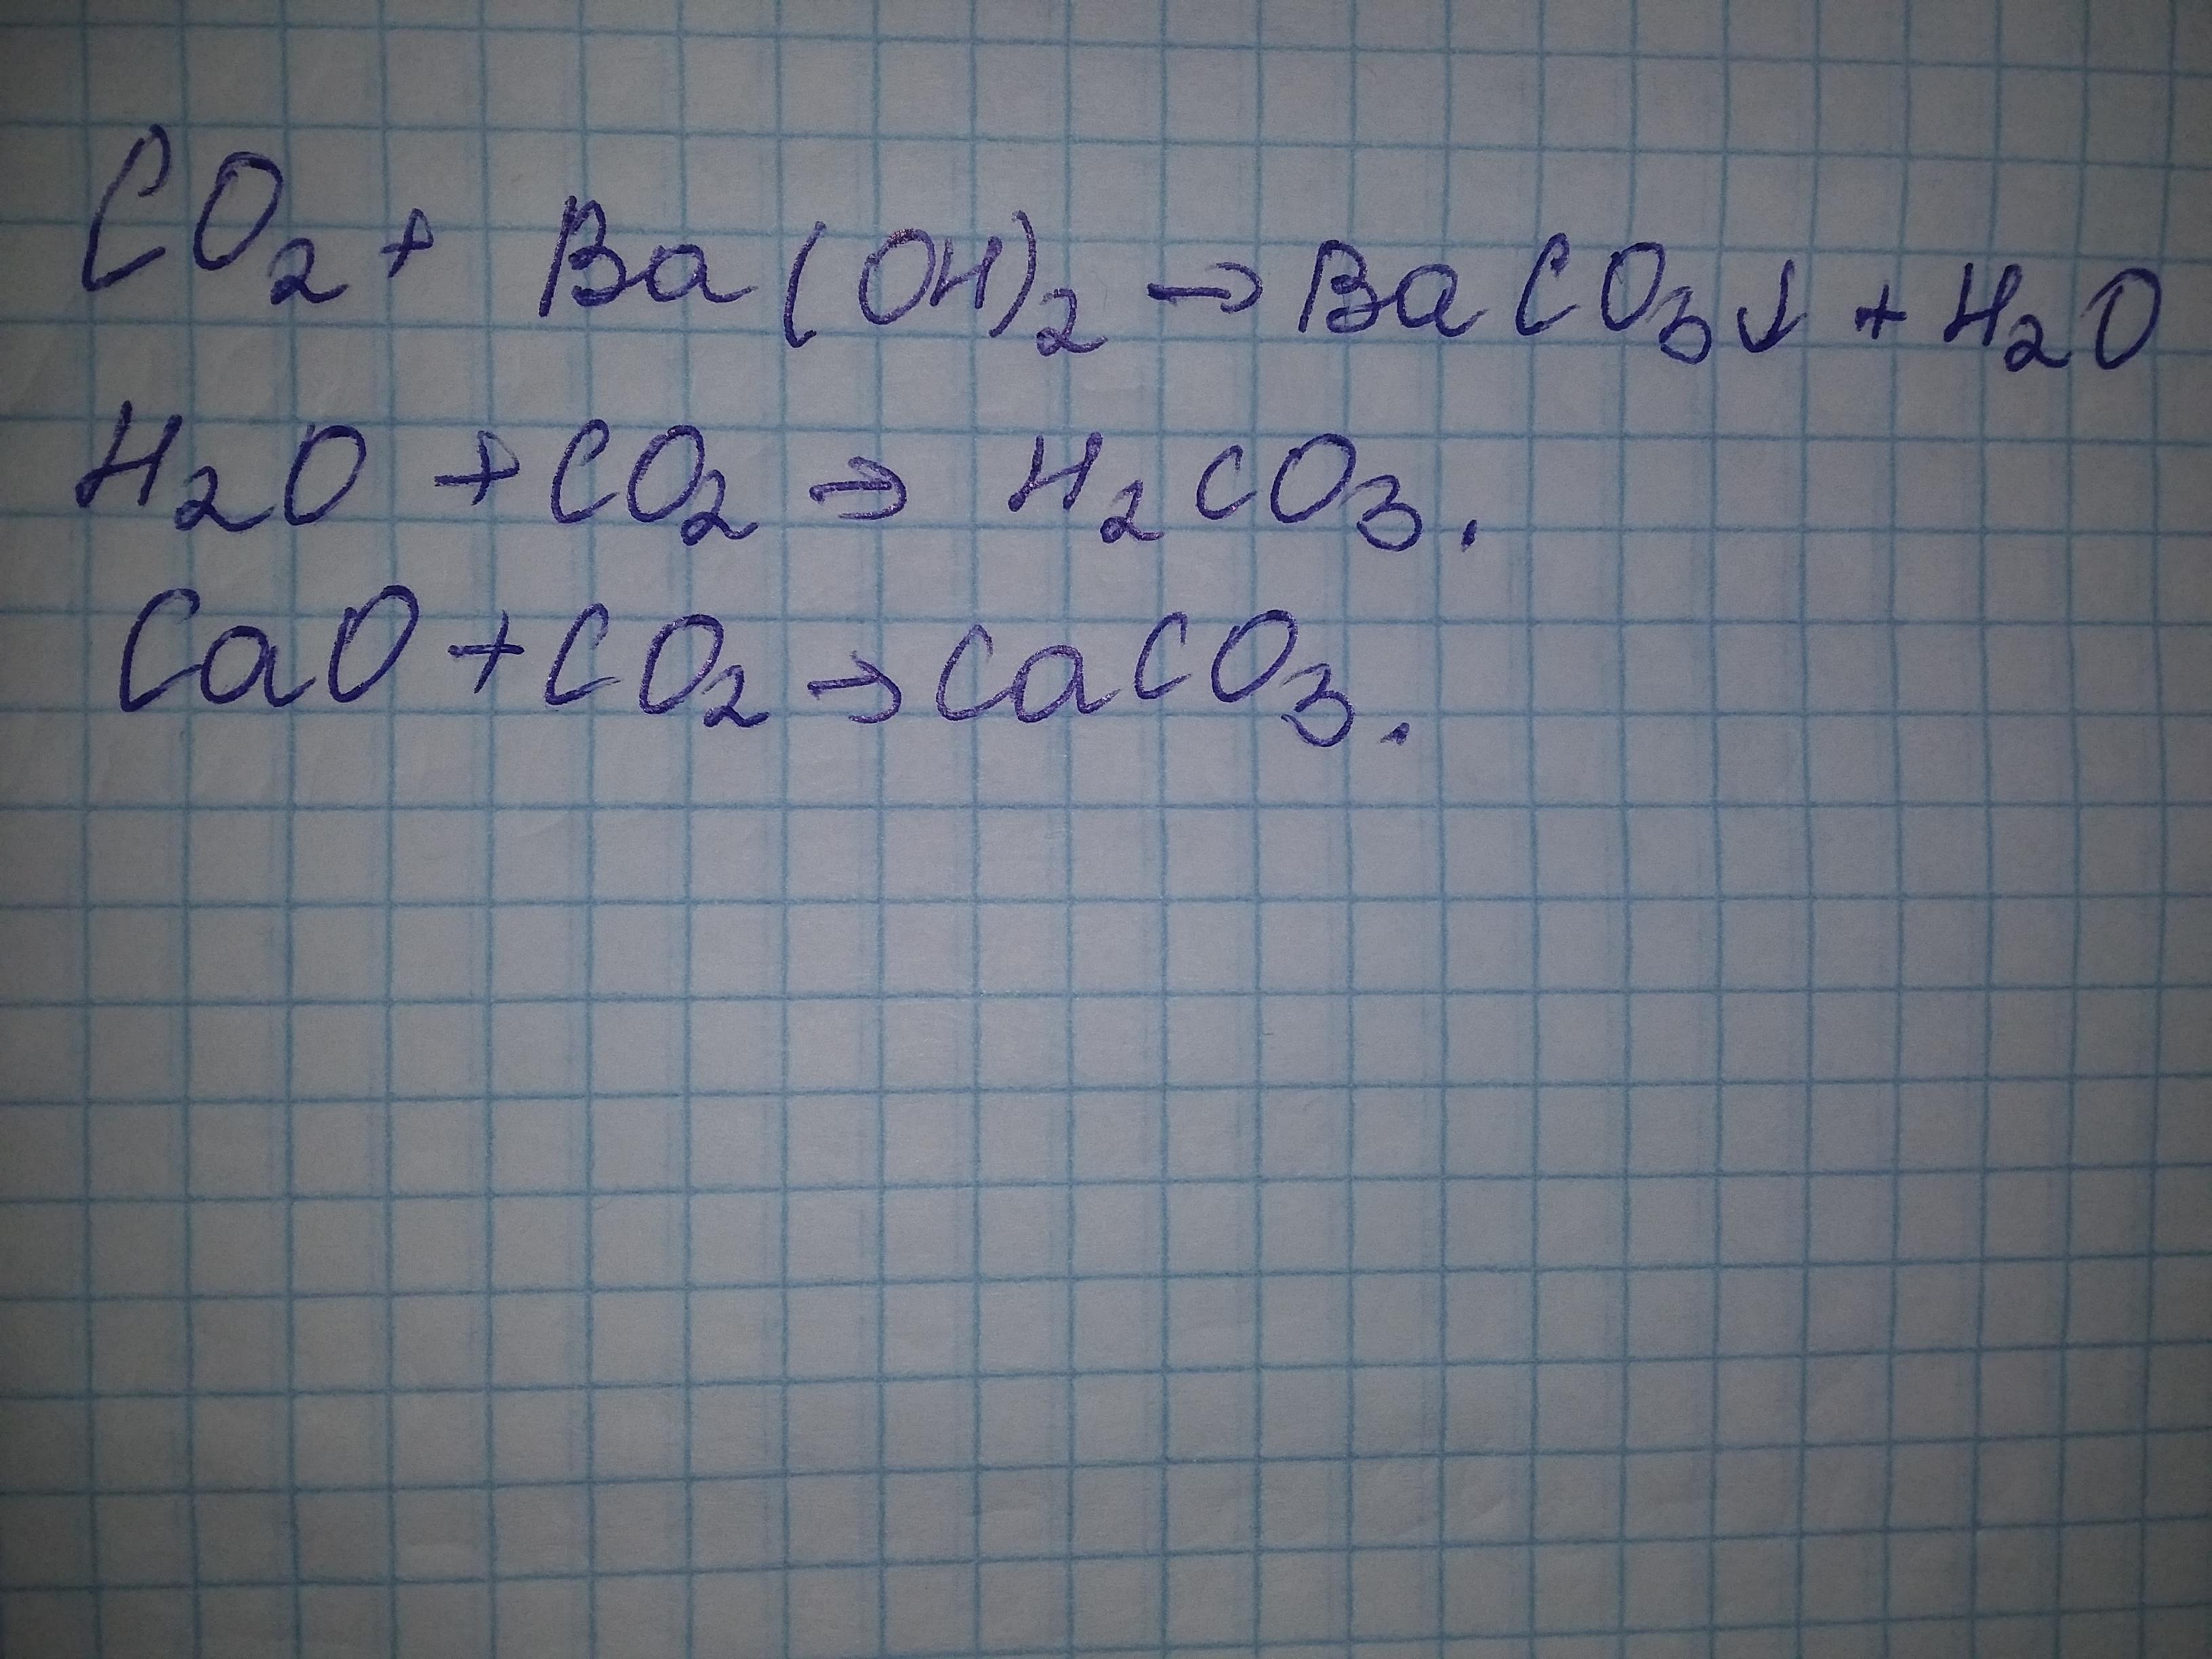 CO₂ + Ba(OH)₂ → BaCO₃↓ + H₂O
H₂O + CO₂ → H₂CO₃.
CaO + CO₂ → CaCO₃.